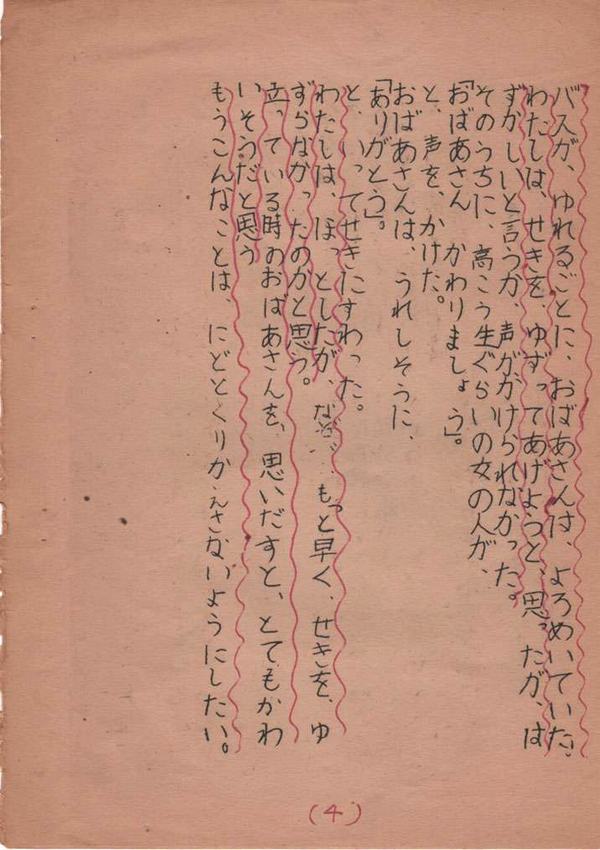 バスが、ゆれるごとに、おばあさんは、よろめいていた。
わたしは、せきを、ゆずってあげようと、思ったが、は
ずかしいと言うか、声ががけられなかった。
そのうちに、高こう生ぐらいの女の人が、
「おばあさん　かわりましょう」。
と、声を、かけた。
おばあさんは、うれしそうに、
「ありがとう」。
と、いってせきにすわった。
わたしは、ほっとしたが、なぜ、もっと早く、せきを、ゆ
ずらなかったのかと思う。
立っている時のおばあさんを、思いだすと、とてもかわ
いそうだと思う
もうこんなことは、にどとくりかえさないようにしたい。
(4)